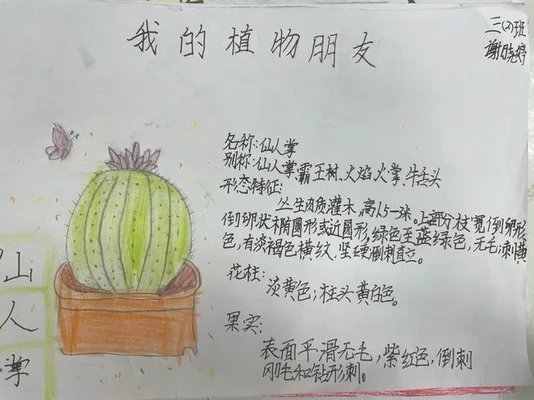 我的植物朋友
三(2)班
谢晓婷
名称:仙人掌
别称:仙人掌,霸王树,火焰,火掌,牛舌头
形态特征:
丛生肉质灌木,高1.5一米。上部分枝宽倒卵形
倒卵状椭圆形或近圆形,绿色至蓝绿色,无毛,刺黄
色,有淡褐色横纹,坚硬倒刺直立。
花柱:
淡黄色;柱头黄白色。
果实:
表面平滑无毛,紫红色,倒刺
刚毛和钻形刺。
仙
人
掌